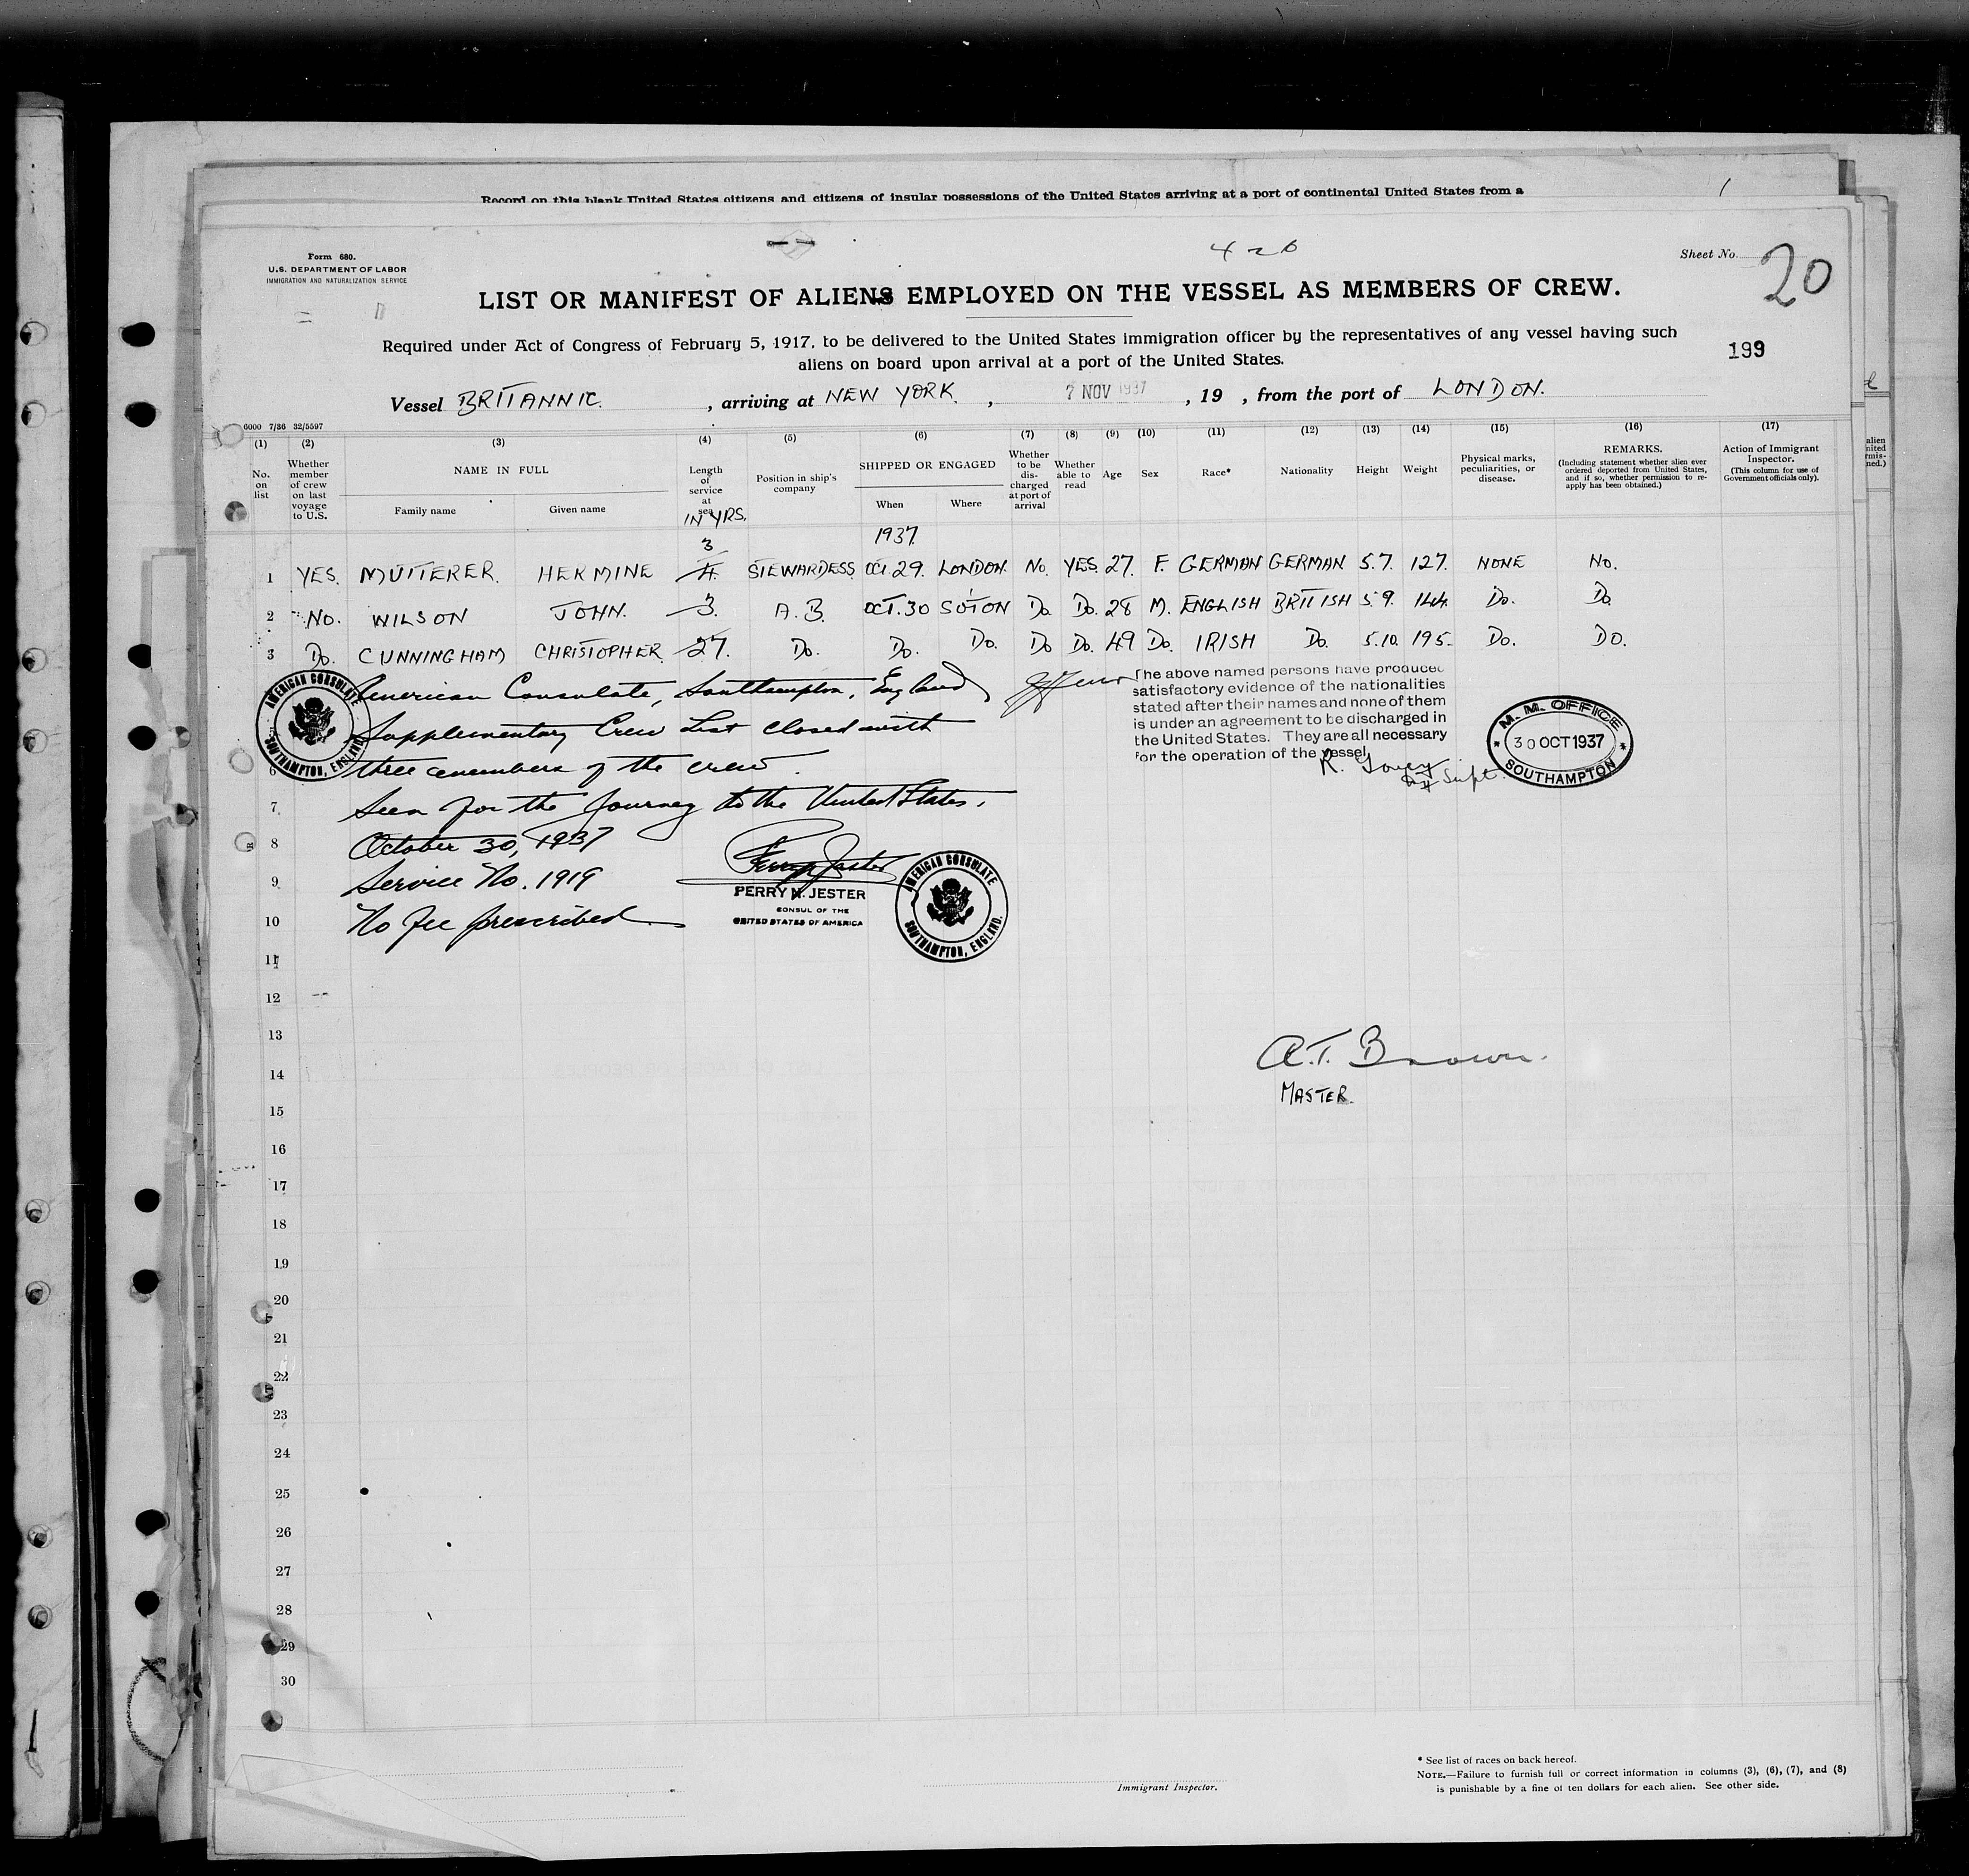 Record on this blank United States citizens and citizens of insular possessions of the United States arriving at a port of continental United States from a
Form 680.
U.S. DEPARTMENT OF LABOR
IMMIGRATION AND NATURALIZATION SERVICE
426
Sheet No. 20
LIST OR MANIFEST OF ALIENS EMPLOYED ON THE VESSEL AS MEMBERS OF CREW.
Required under Act of Congress of February 5, 1917, to be delivered to the United States immigration officer by the representatives of any vessel having such
aliens on board upon arrival at a port of the United States.
199
Vessel BRITANNIC. , arriving at NEW YORK. , 7 NOV 1937 , 19 , from the port of LONDON.
6000 7/36 32/5597
(1) (2) (3) (4) (5) (6) (7) (8) (9) (10) (11) (12) (13) (14) (15) (16) (17)
No. on list
Whether member of crew on last voyage to U.S.
NAME IN FULL
Family name
Given name
Length of service at sea
IN YRS.
Position in ship's company
SHIPPED OR ENGAGED
When
Where
Whether to be discharged at port of arrival
Whether able to read
Age
Sex
Race*
Nationality
Height
Weight
Physical marks, peculiarities, or disease.
REMARKS.
(Including statement whether alien ever ordered deported from United States, and if so, whether permission to reapply has been obtained.)
Action of Immigrant Inspector.
(This column for use of Government officials only).
1937.
3
1 YES. MUTTERER. HERMINE 4. STEWARDESS. OCT. 29. LONDON. No. YES. 27. F. GERMAN GERMAN 5.7. 127. NONE No.
2 No. WILSON JOHN. 3. A.B. OCT. 30 SOTON Do. Do. 28 M. ENGLISH BRITISH 5.9. 144. Do. Do
3 Do. CUNNINGHAM CHRISTOPHER. 27. Do. Do. Do. Do Do. 49 Do. IRISH Do. 5.10. 195. Do. DO.
AMERICAN CONSULATE
SOUTHAMPTON, ENGLAND.
American Consulate, Southampton, England
Supplementary Crew List closed with
three members of the crew.
Seen for the journey to the United States.
October 30, 1937
Service No. 1919
No fee prescribed
The above named persons have produced
satisfactory evidence of the nationalities
stated after their names and none of them
is under an agreement to be discharged in
the United States. They are all necessary
for the operation of the vessel
Supt.
M. M. OFFICE
30 OCT 1937
SOUTHAMPTON
Perry Jester
PERRY N. JESTER
CONSUL OF THE
UNITED STATES OF AMERICA
AMERICAN CONSULATE
SOUTHAMPTON, ENGLAND.
6
7
8
9
10
11
12
13
14
A.T. Brown.
MASTER.
15
16
17
18
19
20
21
22
23
24
25
26
27
28
29
30
Immigrant Inspector.
* See list of races on back hereof.
NOTE.—Failure to furnish full or correct information in columns (3), (6), (7), and (8)
is punishable by a fine of ten dollars for each alien. See other side.